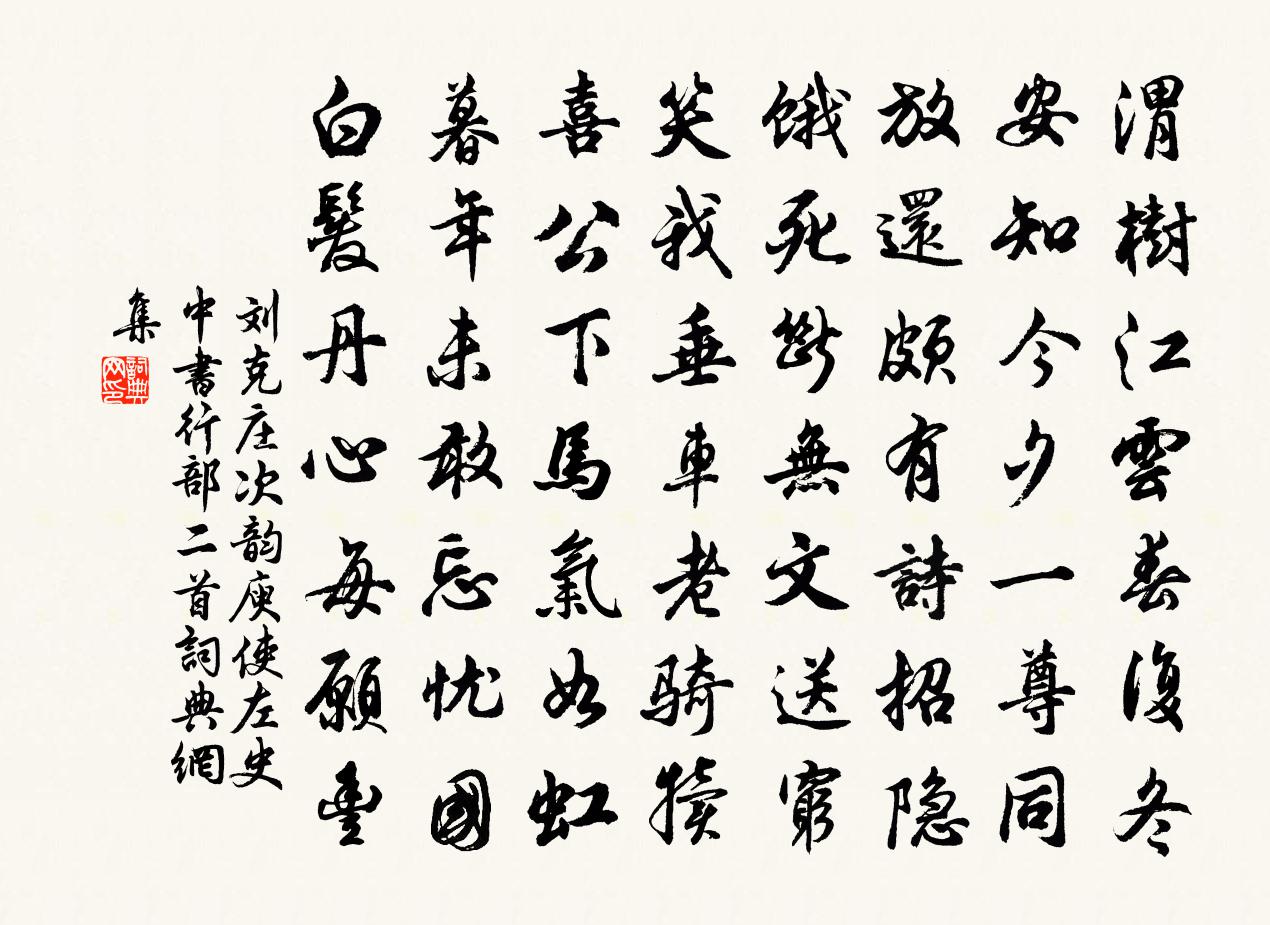 渭樹江雲春復冬
安知今夕一尊同
放還頗有詩招隐
餓死斷無文送窮
笑我垂車老騎犢
喜公下馬氣如虹
暮年未敢忘忧國
白髮丹心每願豊
刘克庄次韵庾使左史
中書行部二首詞典網
集
詞典
网印